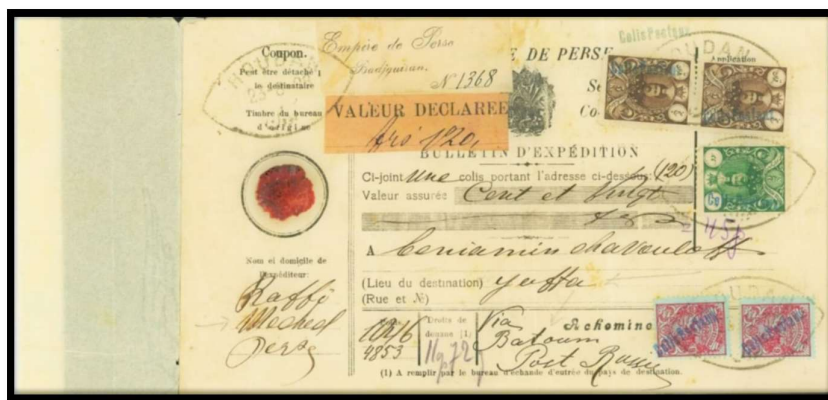 Coupon.
Peut être détaché p
le destinataire
HOUDAN
Timbre du bureau
d'origine
Empire de Perse
Badjguiran.
N 1368
VALEUR DECLAREE
frs 120,
E DE PERSE
Colis Postaux
HOUDAN
Application
BULLETIN D'EXPÉDITION
Ci-joint une colis portant l'adresse ci-dessous: (120)
Valeur assurée Cent et Vingt
A Beniamin
(Lieu du destination) Yaffa
(Rue et №)
Nom et domicile de
l'Expéditeur:
Raffi
Meched
Perse
4853
Droits de
douane (1)
Via
Batoum
Post Russe
Achemine
(1) A remplir par le bureau d'échande d'entrée du pays de destination.